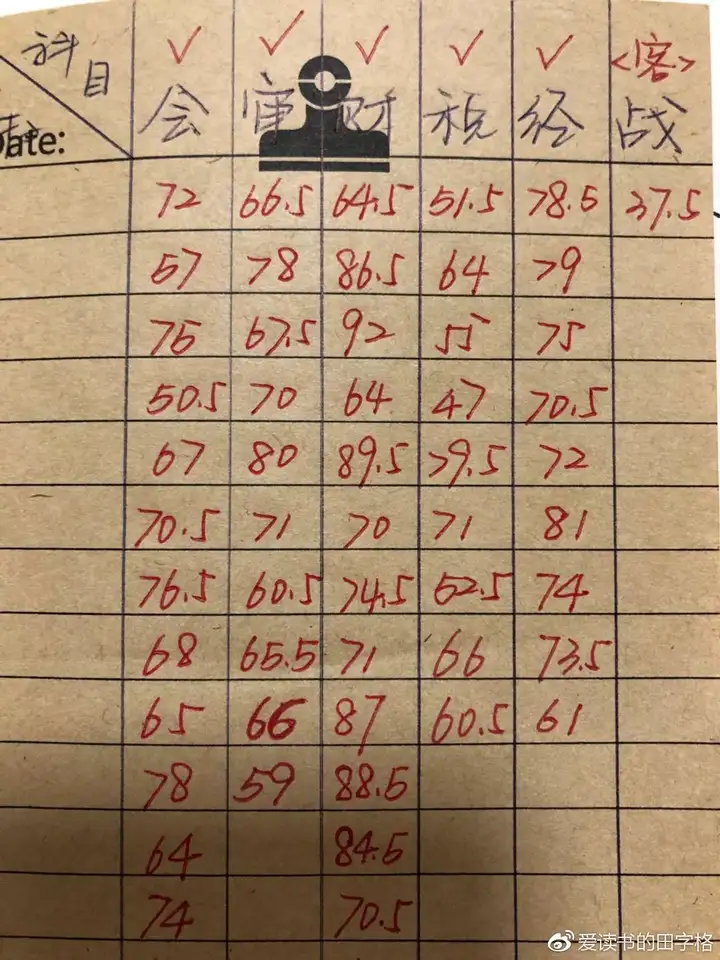 科目 ✓ ✓ ✓ ✓ ✓ <客>
ate: 会 审 财 税 经 战
72 66.5 64.5 51.5 78.5 37.5
57 78 86.5 64 79
76 67.5 92 55 75
50.5 70 64 47 70.5
67 80 89.5 79.5 72
70.5 71 70 71 81
76.5 60.5 74.5 52.5 74
68 65.5 71 66 73.5
65 66 87 60.5 61
78 59 88.5
64 84.5
74 70.5
爱读书的田字格